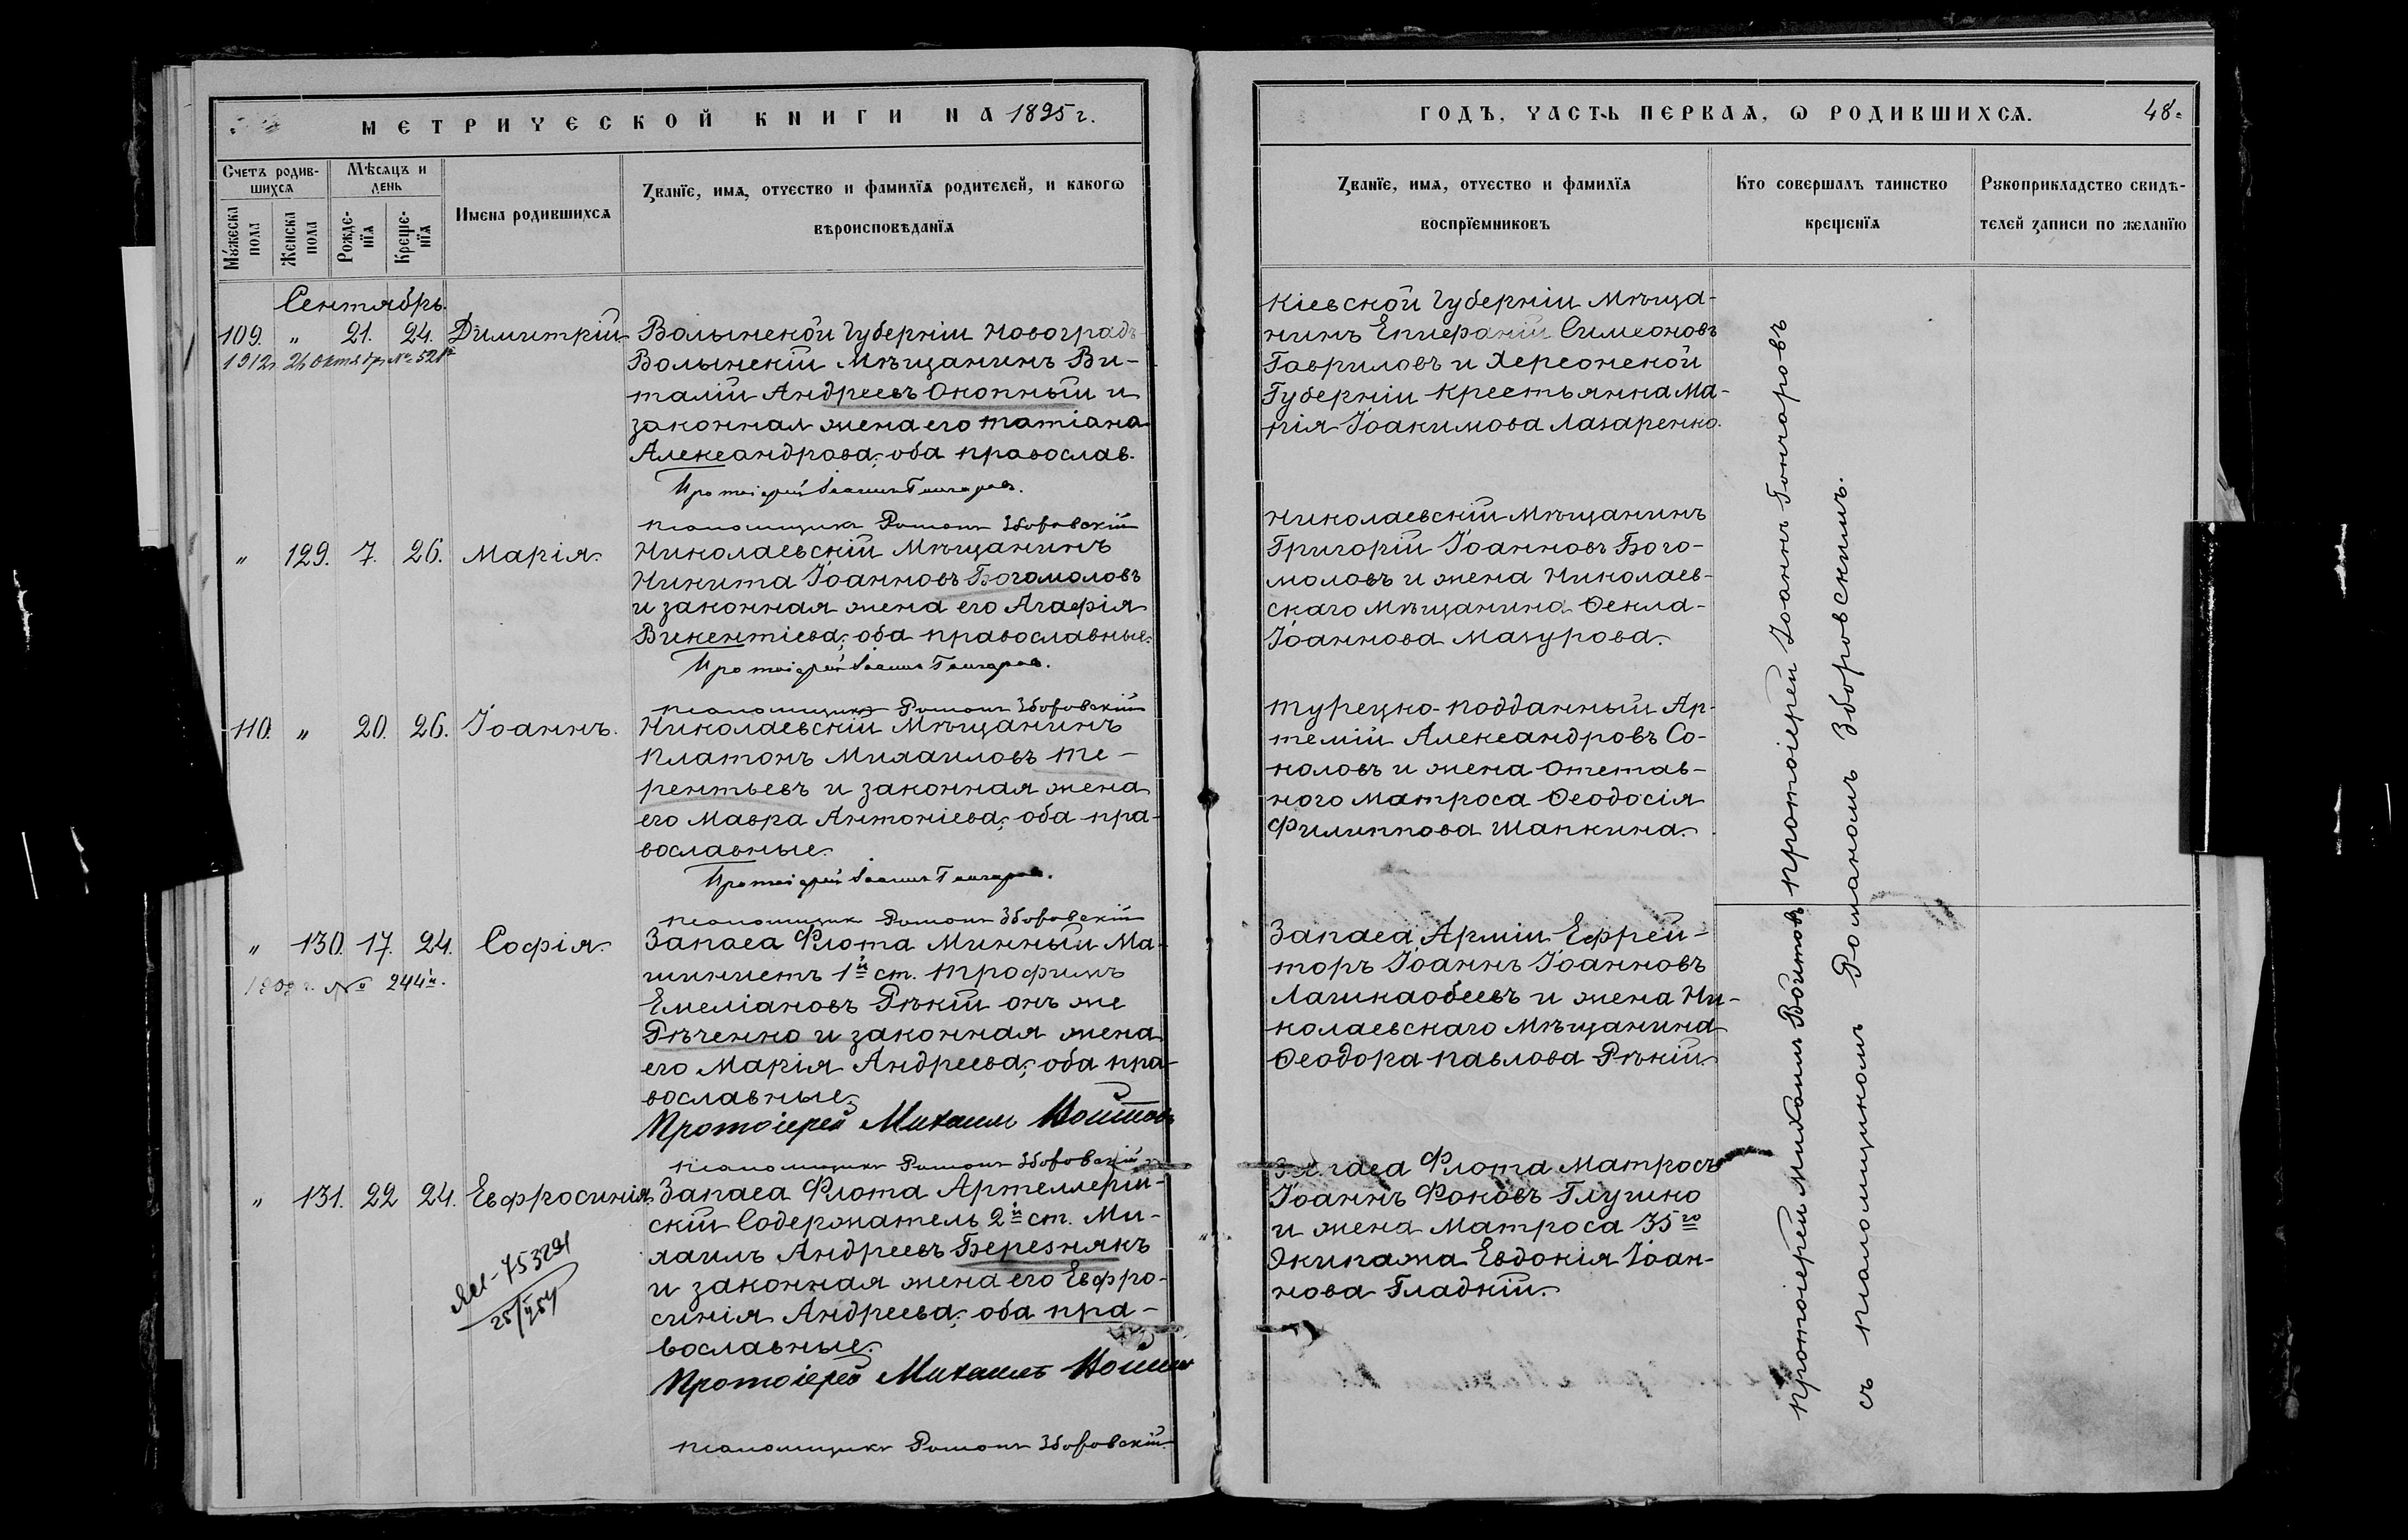 МЕТРИЧЕСКОЙ КНИГИ НА 1895 г.
Счетъ родив-
шихсѧ
Мѣсѧцъ и
день
Мꙋжеска
пола
Женска
пола
Рожде-
нїѧ
Креще-
нїѧ
Имена родившихсѧ
Званїе, имѧ, отчество и фамилїѧ родителей, и какогѡ
вѣроисповѣданїѧ
Сентябрь.
109. „ 21. 24. Димитрій
1912г. 26 Октября № 521
Волынской Губерніи Новоградъ
Волынскій Мѣщанинъ Ви-
талій Андреевъ Окопный и
законная жена его Татіана
Александрова; оба православ.
Протоіерей Іоаннъ Гончаровъ.
псаломщикъ Романъ Зборовскій
„ 129. 7. 26. Марія.
Николаевскій Мѣщанинъ
Никита Іоанновъ Богомоловъ
и законная жена его Агафія
Викентіева; оба православные.
Протоіерей Іоаннъ Гончаровъ.
псаломщикъ Романъ Зборовскій
110. „ 20. 26. Іоаннъ.
Николаевскій Мѣщанинъ
Платонъ Михаиловъ Те-
рентьевъ и законная жена
его Мавра Антоніева; оба пра-
вославные.
Протоіерей Іоаннъ Гончаровъ.
псаломщикъ Романъ Зборовскій
„ 130. 17. 24. Софія.
№ 244й.
Запаса Флота Минный Ма-
шинистъ 1й ст. Трофимъ
Емеліановъ Рѣкій онъ же
Рѣченко и законная жена
его Марія Андреева; оба пра-
вославные
Протоіерей Михаилъ Войтовъ
псаломщикъ Романъ Зборовскій
„ 131. 22 24. Евфросинія.
Запаса Флота Артеллерій-
скій Содержатель 2й ст. Ми-
хаилъ Андреевъ Березнякъ
и законная жена его Евфро-
синія Андреева; оба пра-
вославные.
Протоіерей Михаилъ
псаломщикъ Романъ Зборовскій
ГОДЪ, ЧАСТЬ ПЕРВАѦ, Ѡ РОДИВШИХСѦ. 48.
Званїе, имѧ, отчество и фамилїѧ
воспрїемниковъ
Кто совершалъ таинство
крещенїѧ
Рꙋкоприкладство свидѣ-
телей записи по желанїю
Кіевской Губерніи Мѣща-
нинъ Епифаній Симеоновъ
Гавриловъ и Херсонской
Губерніи Крестьянка Ма-
рія Іоакимова Лазаренко.
Николаевскій Мѣщанинъ
Григорій Іоанновъ Бого-
моловъ и жена Николаев-
скаго Мѣщанина Ѳекла
Іоаннова Мазурова.
Турецко-подданный Ар-
темій Александровъ Со-
коловъ и жена Отстав-
ного Матроса Ѳеодосія
Филиппова Шапкина.
Запаса Арміи Ефрей-
торъ Іоаннъ Іоанновъ
и жена Ни-
колаевскаго Мѣщанина
Ѳеодора Павлова Рѣкій.
Флота Матросъ
Іоаннъ Фоковъ Глушко
и жена Матроса 35го
Экипажа Евдокія Іоан-
нова Гладкій.
протоіерей Михаилъ Войтовъ протоіерей Іоаннъ Гончаровъ
съ псаломщикомъ Романомъ Зборовскимъ.